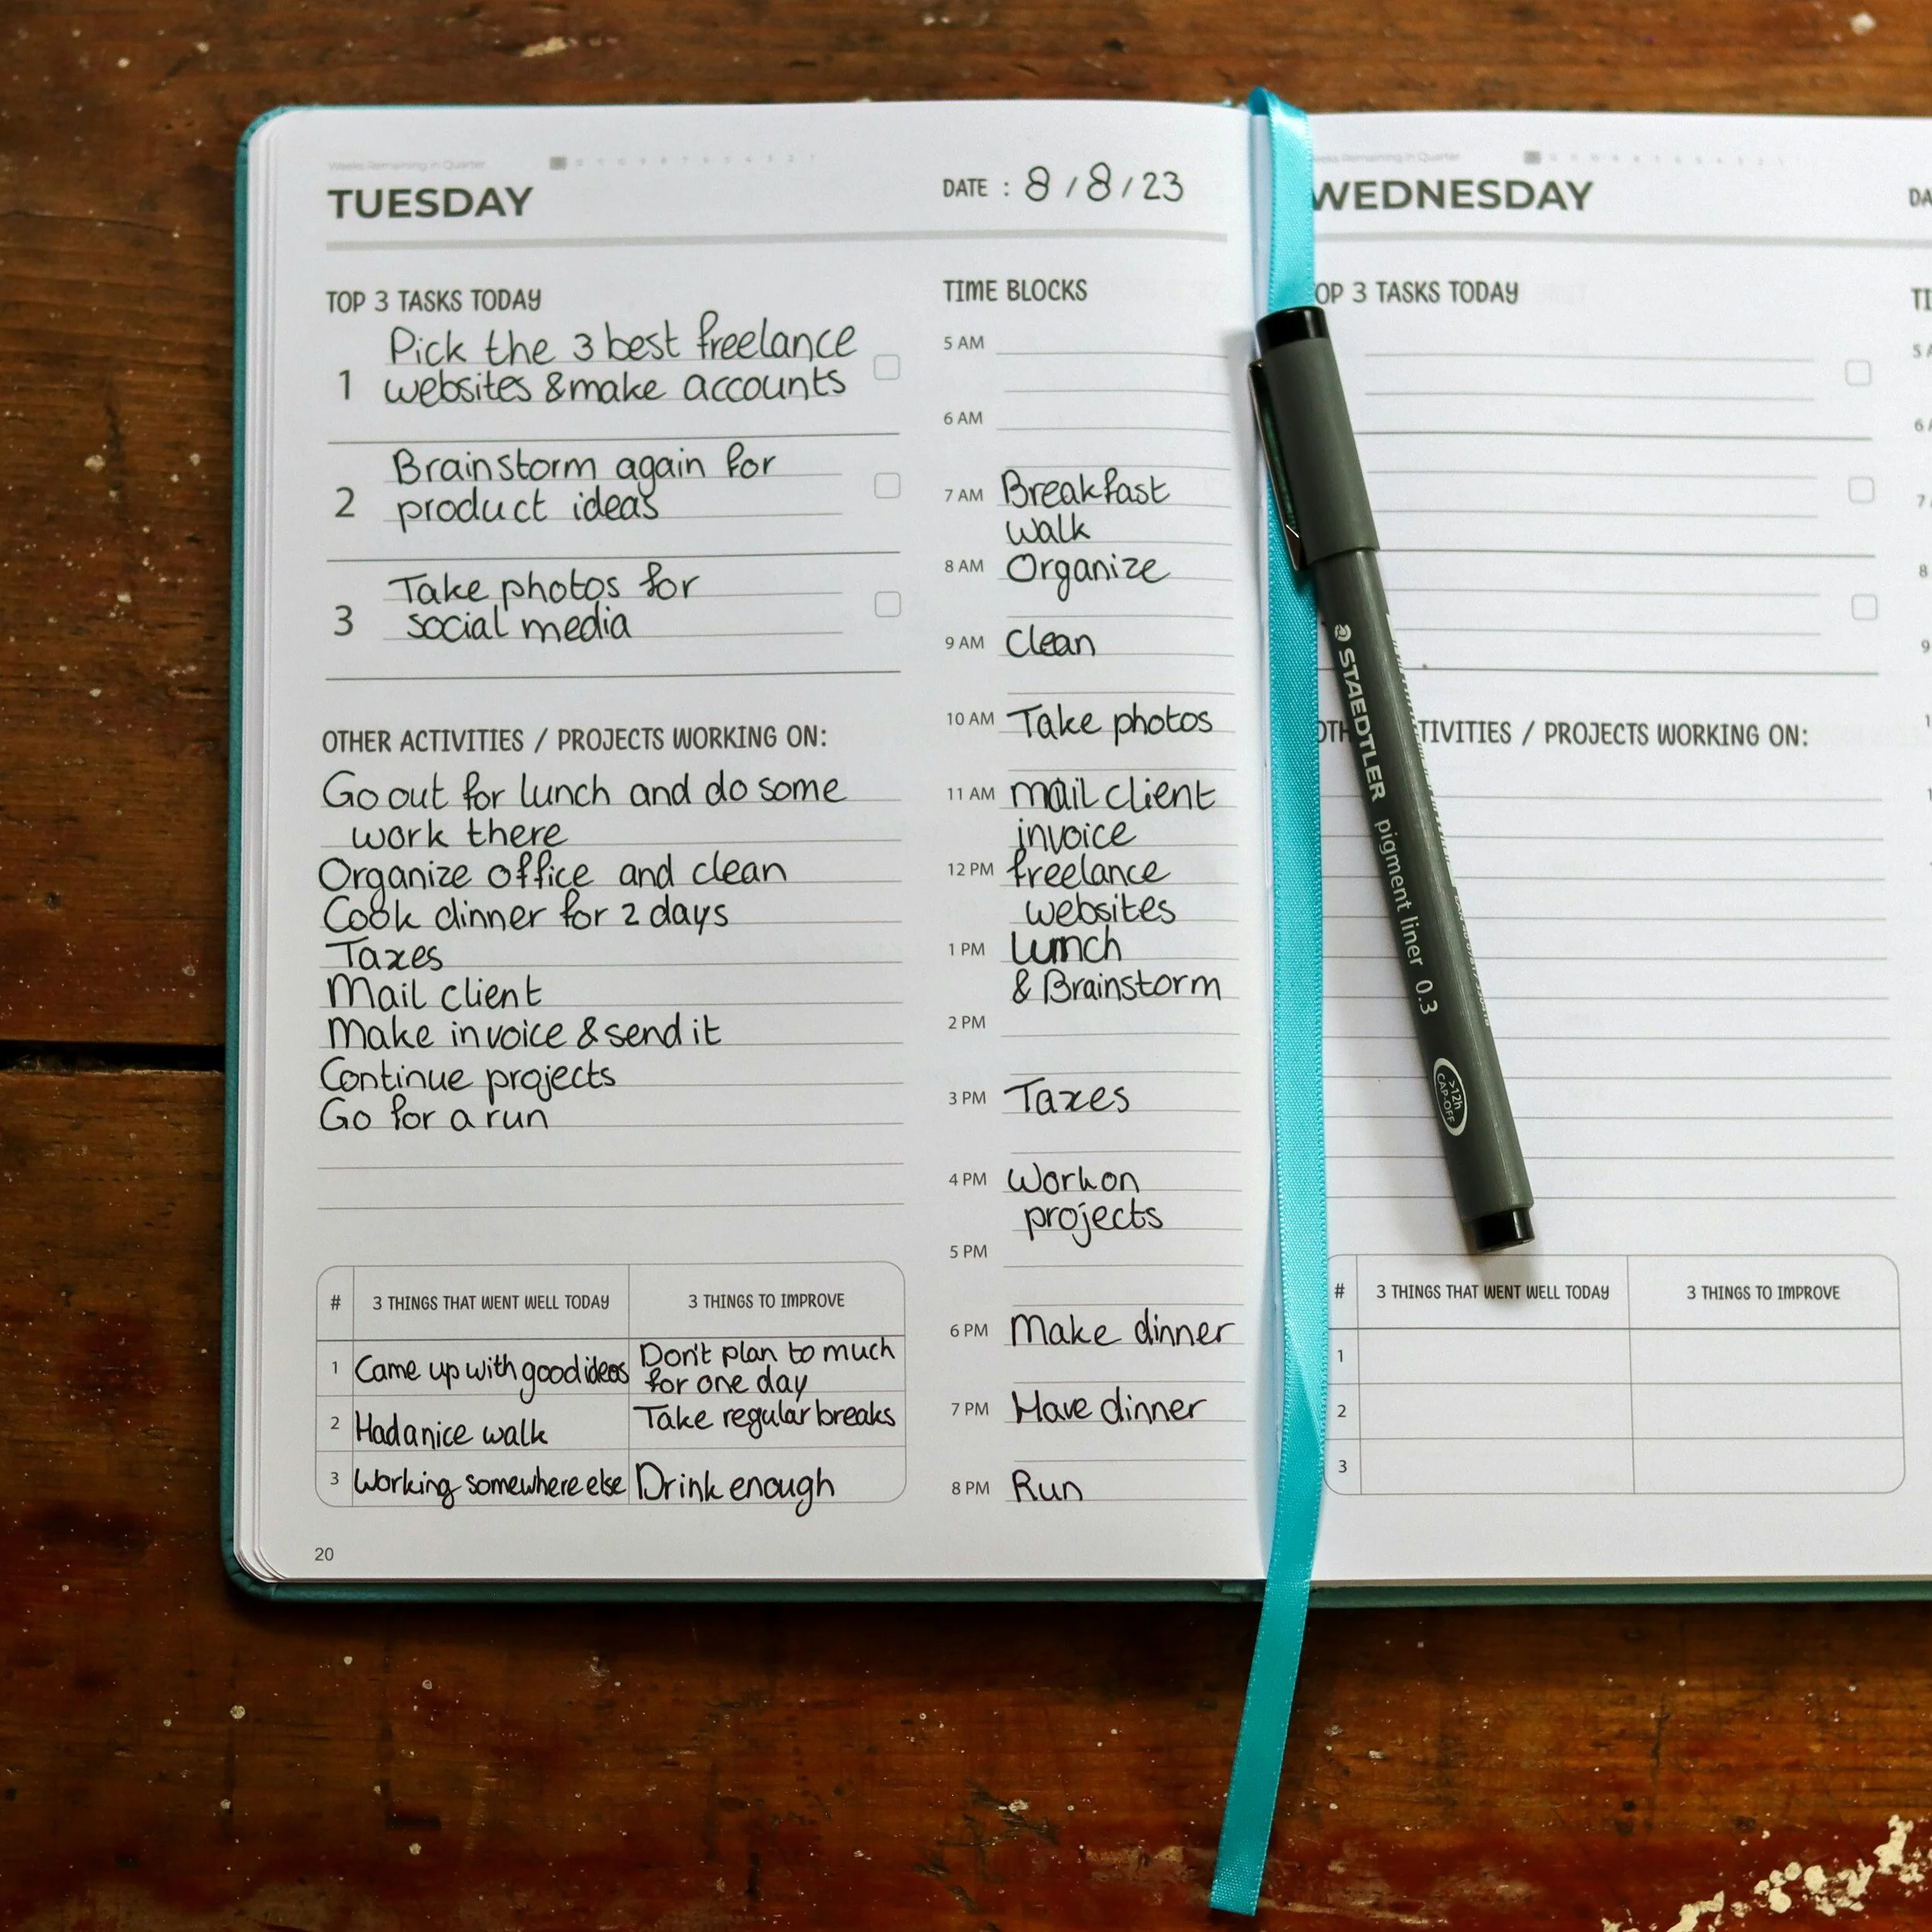 Weeks Remaining in Quarter
TUESDAY
DATE : 8 / 8 / 23
TOP 3 TASKS TODAY
1
Pick the 3 best freelance
websites & make accounts
2
Brainstorm again for
product ideas
3
Take photos for
social media
OTHER ACTIVITIES / PROJECTS WORKING ON:
Go out for lunch and do some
work there
Organize office and clean
Cook dinner for 2 days
Taxes
Mail client
Make invoice & send it
Continue projects
Go for a run
# 3 THINGS THAT WENT WELL TODAY 3 THINGS TO IMPROVE
1 Came up with good ideas Don't plan to much
for one day
2 Had a nice walk Take regular breaks
3 Working somewhere else Drink enough
20
TIME BLOCKS
5 AM
6 AM
7 AM Breakfast
walk
8 AM Organize
9 AM Clean
10 AM Take photos
11 AM mail client
invoice
12 PM freelance
websites
1 PM Lunch
& Brainstorm
2 PM
3 PM Taxes
4 PM Work on
projects
5 PM
6 PM Make dinner
7 PM Have dinner
8 PM Run
STAEDTLER pigment liner 0.3
>12h
CAP-OFF
Remaining in Quarter
WEDNESDAY
DA
OP 3 TASKS TODAY
TI
5 A
6 A
7
8
9
OTH TIVITIES / PROJECTS WORKING ON:
# 3 THINGS THAT WENT WELL TODAY 3 THINGS TO IMPROVE
1
2
3